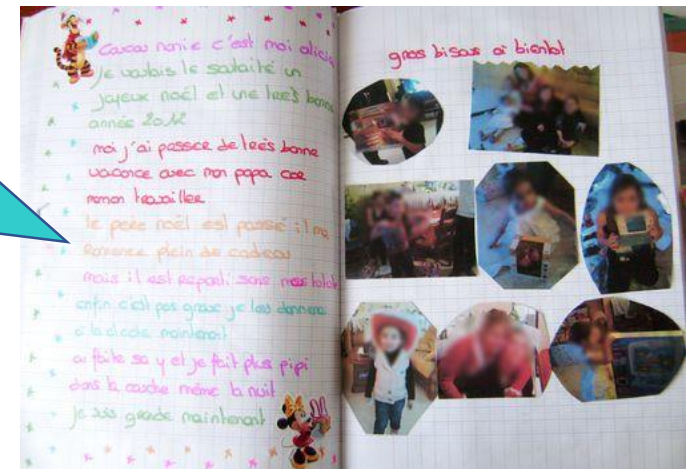 Coucou nanie c'est moi alicia
je voulais le souaité un
joyeux noël et une trés bonne
année 2012
moi j'ai passée de trés bonne
vacance avec mon papa car
maman travailler
le père noël est passé il ma
Ramence plein de cadeau
mais il est reparti sans mes tutute
enfin c'est pas grave je les donnerai
a la place maintenant
a faite sa y et je fait plus pipi
dans la couche même la nuit
je suis grande maintenant
gros bisous a bientot